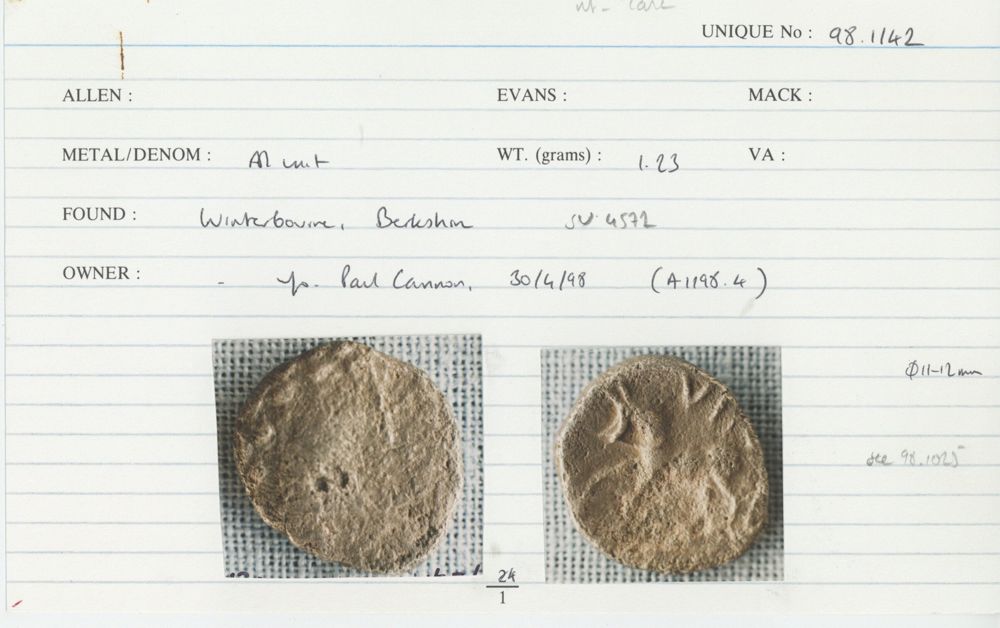 UNIQUE No : 98.1142
ALLEN :
EVANS :
MACK :
METAL/DENOM : AR unit
WT. (grams) : 1.23
VA :
FOUND : Winterbourne, Berkshire SU 4572
OWNER : - Paul Cannon, 30/4/98 (A1198.4)
Ø11-12mm
see 98.1025
24
1